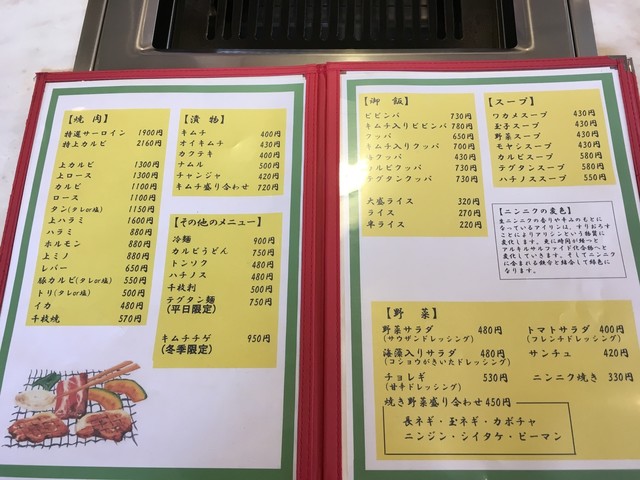 【焼 肉】
特選サーロイン 1900円
特上カルビ 2160円
上カルビ 1300円
上ロース 1300円
カルビ 1100円
ロース 1100円
タン(タレor塩) 1150円
上ハラミ 1600円
ハラミ 880円
ホルモン 880円
上ミノ 880円
レバー 650円
豚カルビ(タレor塩) 550円
トリ(タレor塩) 500円
イカ 480円
千枚焼 570円
【漬 物】
キムチ 400円
オイキムチ 430円
カクテキ 400円
ナムル 500円
チャンジャ 420円
キムチ盛り合わせ 720円
【その他のメニュー】
冷麺 900円
カルビうどん 750円
トンソク 480円
ハチノス 480円
千枚刺 500円
テグタン麺 750円
(平日限定)
キムチチゲ 950円
(冬季限定)
【御 飯】
ビビンバ 730円
キムチ入りビビンバ 780円
クッパ 650円
キムチ入りクッパ 700円
クッパ 430円
カルビクッパ 730円
テグタンクッパ 730円
大盛ライス 320円
ライス 270円
半ライス 220円
【スープ】
ワカメスープ 430円
玉子スープ 430円
野菜スープ 430円
モヤシスープ 430円
カルビスープ 580円
テグタンスープ 580円
ハチノススープ 550円
【ニンニクの変色】
生ニンニクの香りや辛みのもとに
なっているアイリンは、すりおろす
ことによりアリシンという物質に
変化します。更に時間が経つと
アルキルサルファイド化合物へと
変化していきます。そしてニンニク
に含まれる鉄分と結合して緑色に
なります。
【野 菜】
野菜サラダ 480円
(サウザンドレッシング)
海藻入りサラダ 480円
(コショウがきいたドレッシング)
チョレギ 530円
(甘辛ドレッシング)
焼き野菜盛り合わせ 450円
長ネギ・玉ネギ・カボチャ
ニンジン・シイタケ・ピーマン
トマトサラダ 400円
(フレンチドレッシング)
サンチュ 420円
ニンニク焼き 330円